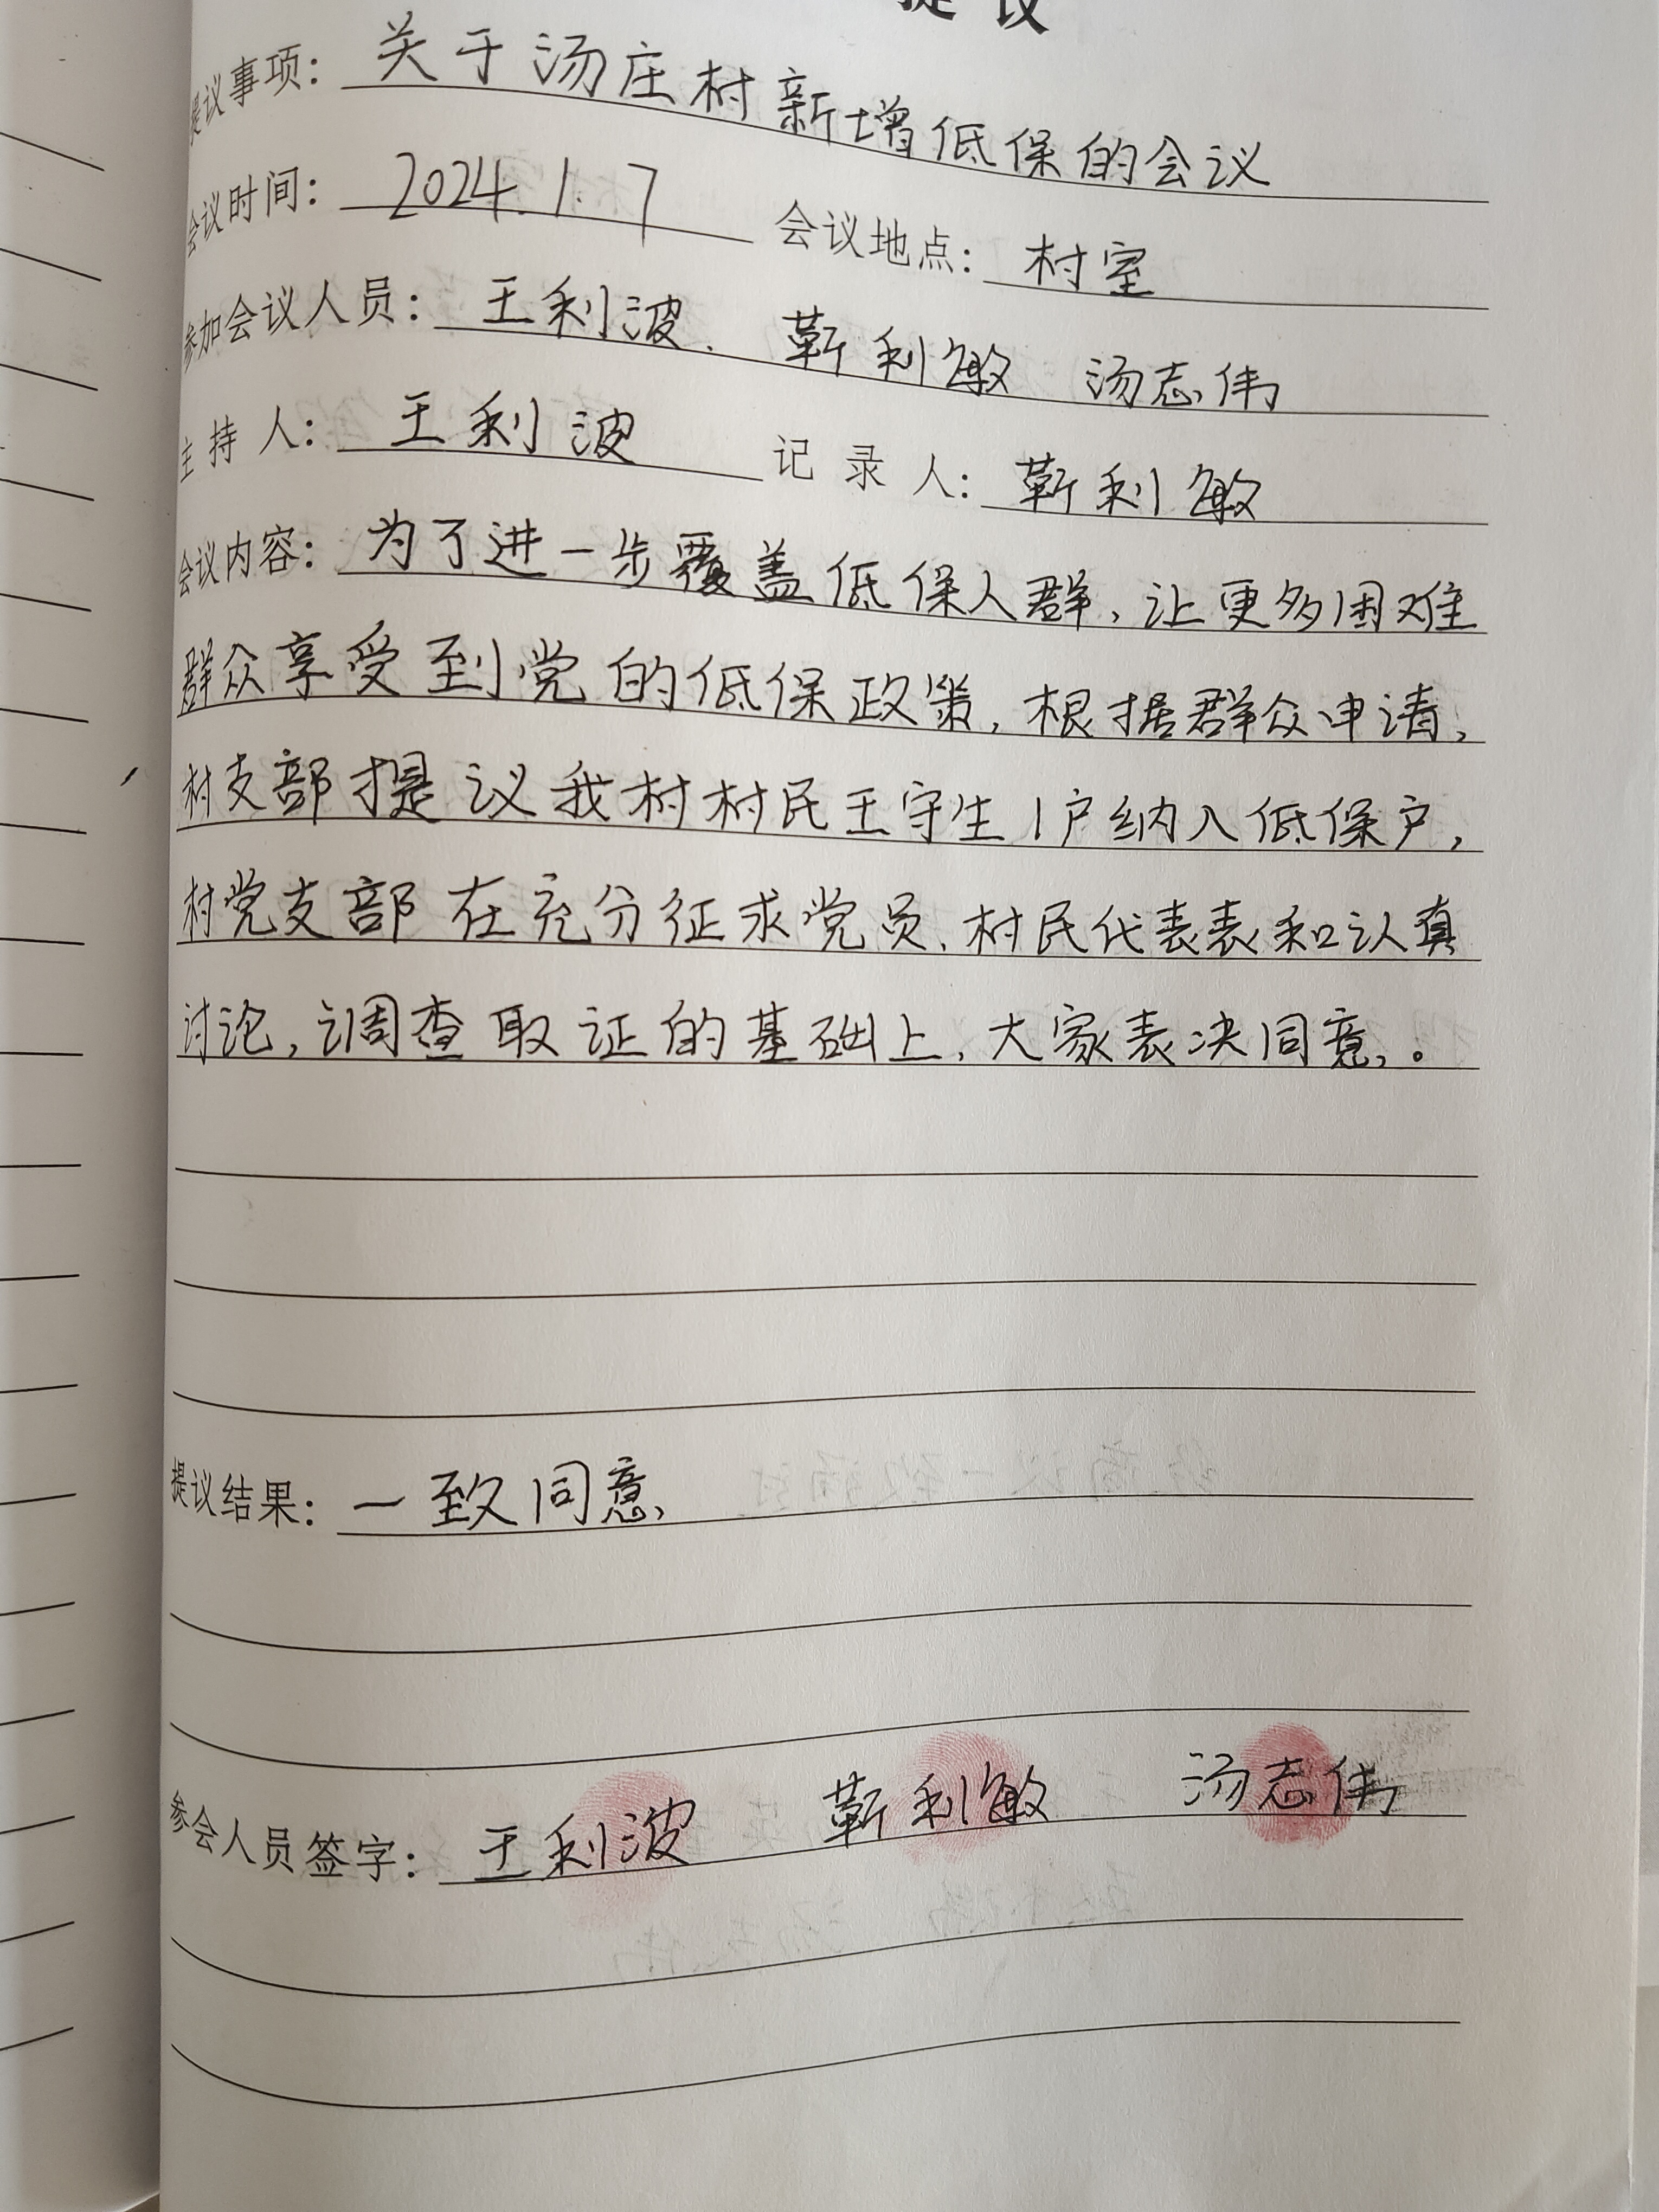 提议
提议事项：关于汤庄村新增低保的会议
会议时间：2024.1.7 会议地点：村室
参加会议人员：王利波、靳利敏 汤志伟
主持人：王利波 记录人：靳利敏
会议内容：为了进一步覆盖低保人群，让更多困难
群众享受到党的低保政策，根据群众申请，
村支部提议我村村民王守生1户纳入低保户，
村党支部在充分征求党员、村民代表表和认真
讨论，调查取证的基础上，大家表决同意，。
提议结果：一致同意
参会人员签字：王利波 靳利敏 汤志伟